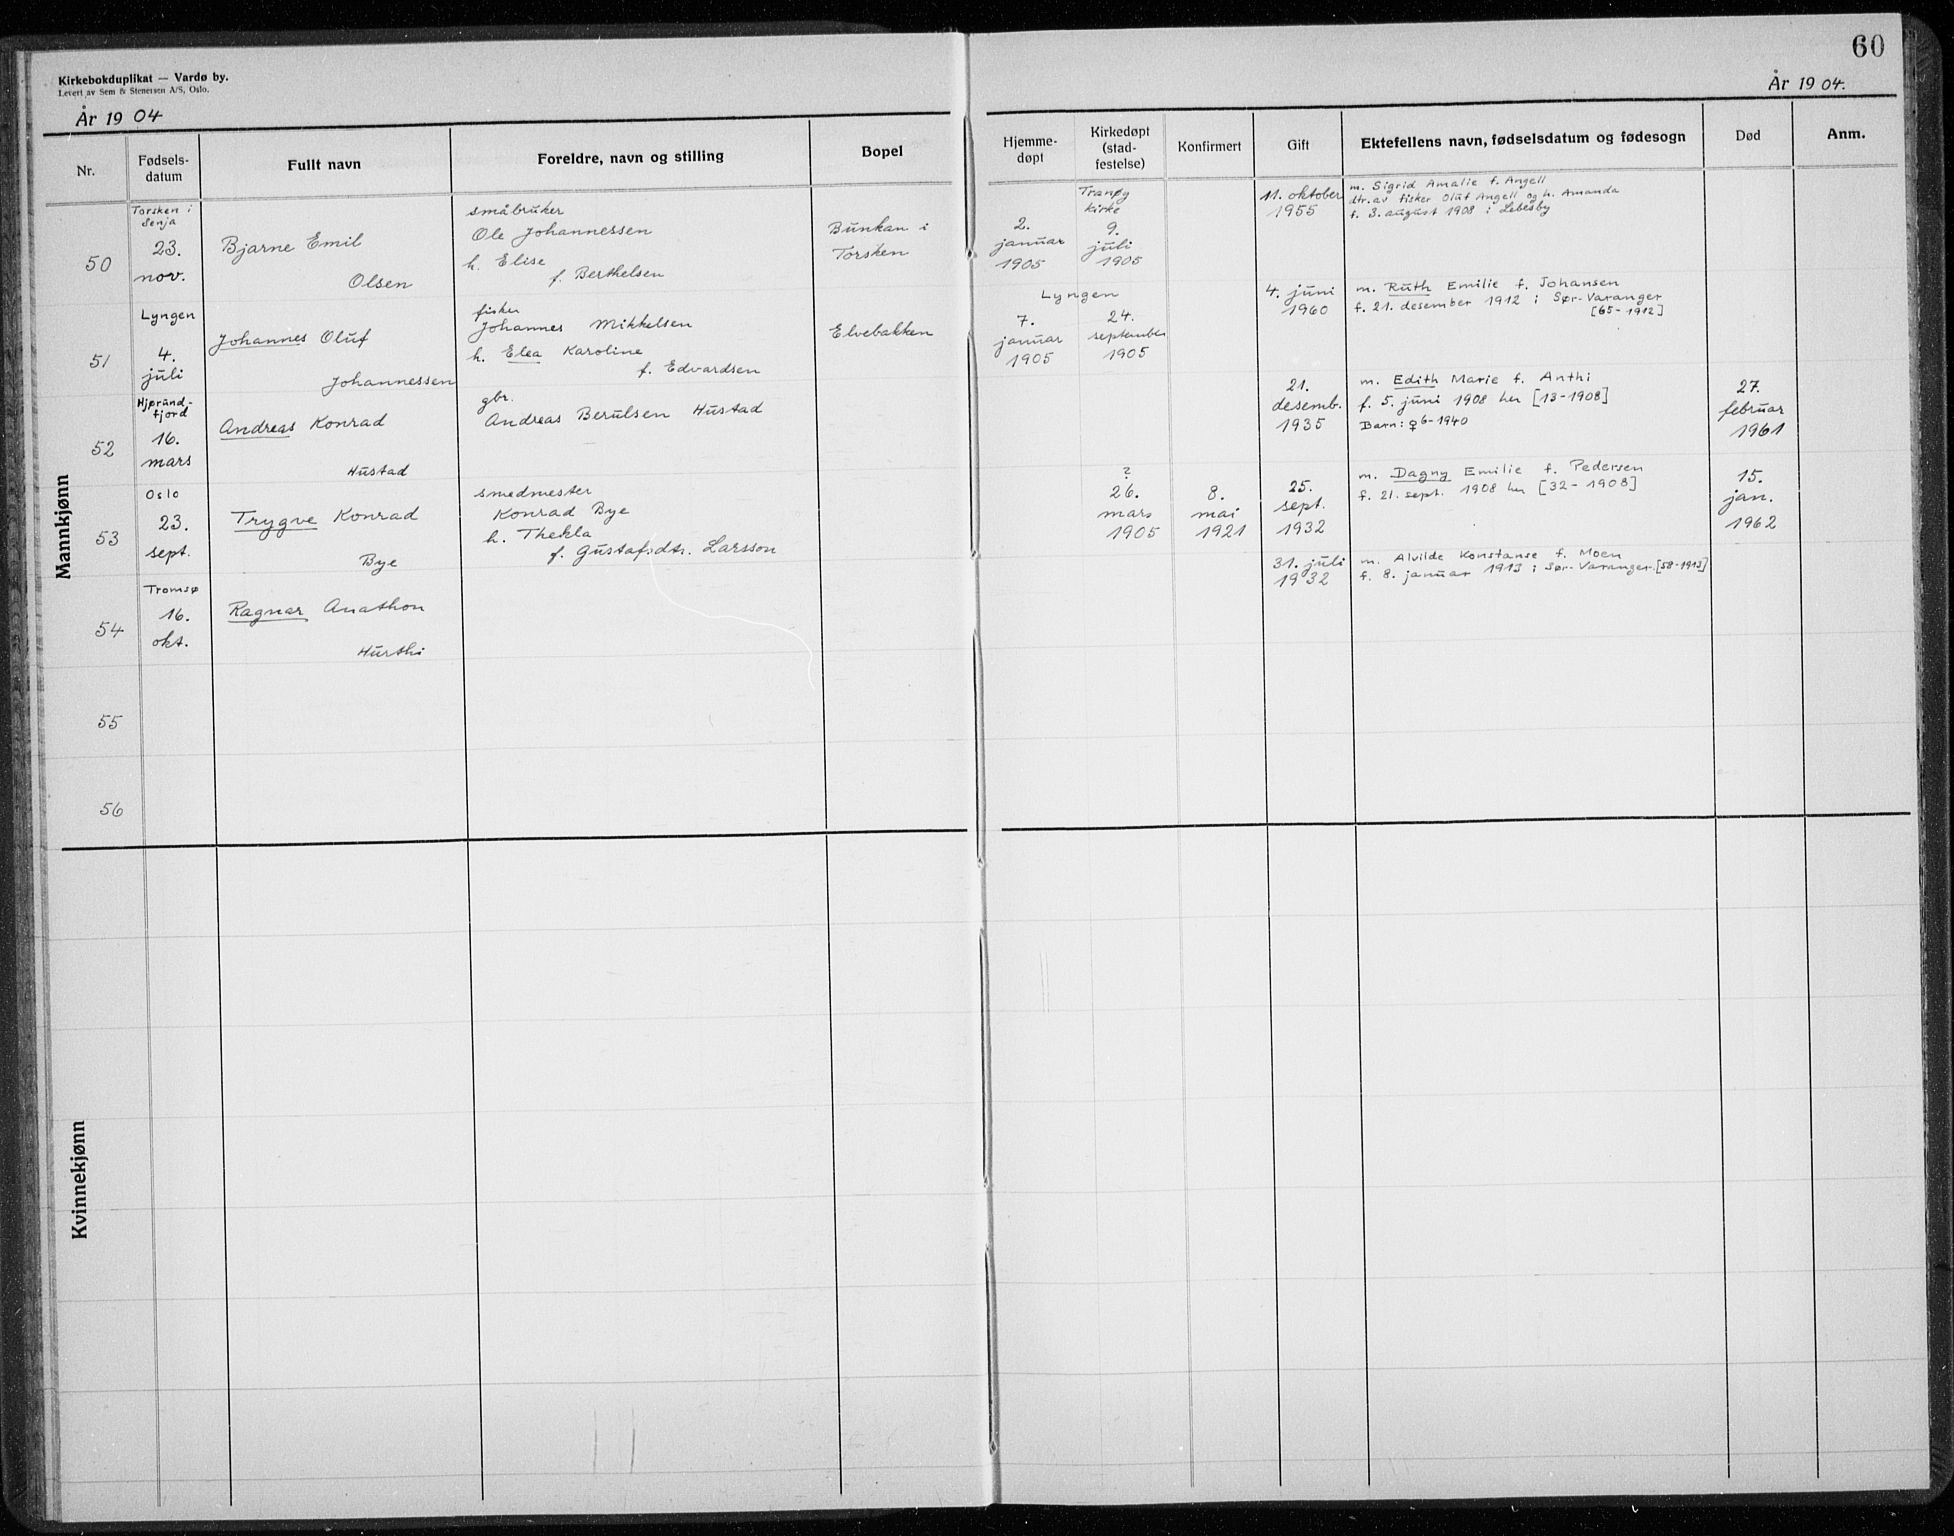 60
Kirkebokduplikat — Vardø by.
Levert av Sem & Stenersen A/S, Oslo.
År 1904
År 1904.
Nr.
Fødsels-
datum
Fullt navn
Foreldre, navn og stilling
Bopel
Hjemme-
døpt
Kirkedøpt
(stad-
festelse)
Konfirmert
Gift
Ektefellens navn, fødselsdatum og fødesogn
Død
Anm.
Mannkjønn
50
Torsken i
Senja
23.
nov.
Bjarne Emil
Olsen
småbruker
Ole Johannessen
h. Elise
f. Berthelsen
Bunkan i
Torsken
2.
januar
1905
Tranøy
kirke
9.
juli
1905
11. oktober
1955
m. Sigrid Amalie f. Angell
dtr. av fisker Oluf Angell og h. Amanda
f. 3. august 1908 i Lebesby
51
Lyngen
4.
juli
Johannes Oluf
Johannessen
fisker
Johannes Mikkelsen
h. Elea Karoline
f. Edvardsen
Elvebakken
Lyngen
7.
januar
1905
24.
september
1905
4. juni
1960
m. Ruth Emilie f. Johansen
f. 21. desember 1912 i Sør-Varanger
[65-1912]
52
Hjørund-
fjord
16.
mars
Andreas Konrad
Hustad
gbr.
Andreas Berulsen Hustad
21.
desemb.
1935
m. Edith Marie f. Anthi
f. 5. juni 1908 her [13-1908]
Barn: ♀6-1940
27.
februar
1961
53
Oslo
23.
sept.
Trygve Konrad
Bye
smedmester
Konrad Bye
h. Thekla
f. Gustafsdtr. Larsson
?
26.
mars
1905
8.
mai
1921
25.
sept.
1932
m. Dagny Emilie f. Pedersen
f. 21. sept. 1908 her [32-1908]
15.
jan.
1962
54
Tromsø
16.
okt.
Ragnar Anathon
Hurthi
31. juli
1932
m. Alvilde Konstanse f. Moen
f. 8. januar 1913 i Sør-Varanger. [58-1913]
55
56
Kvinnekjønn